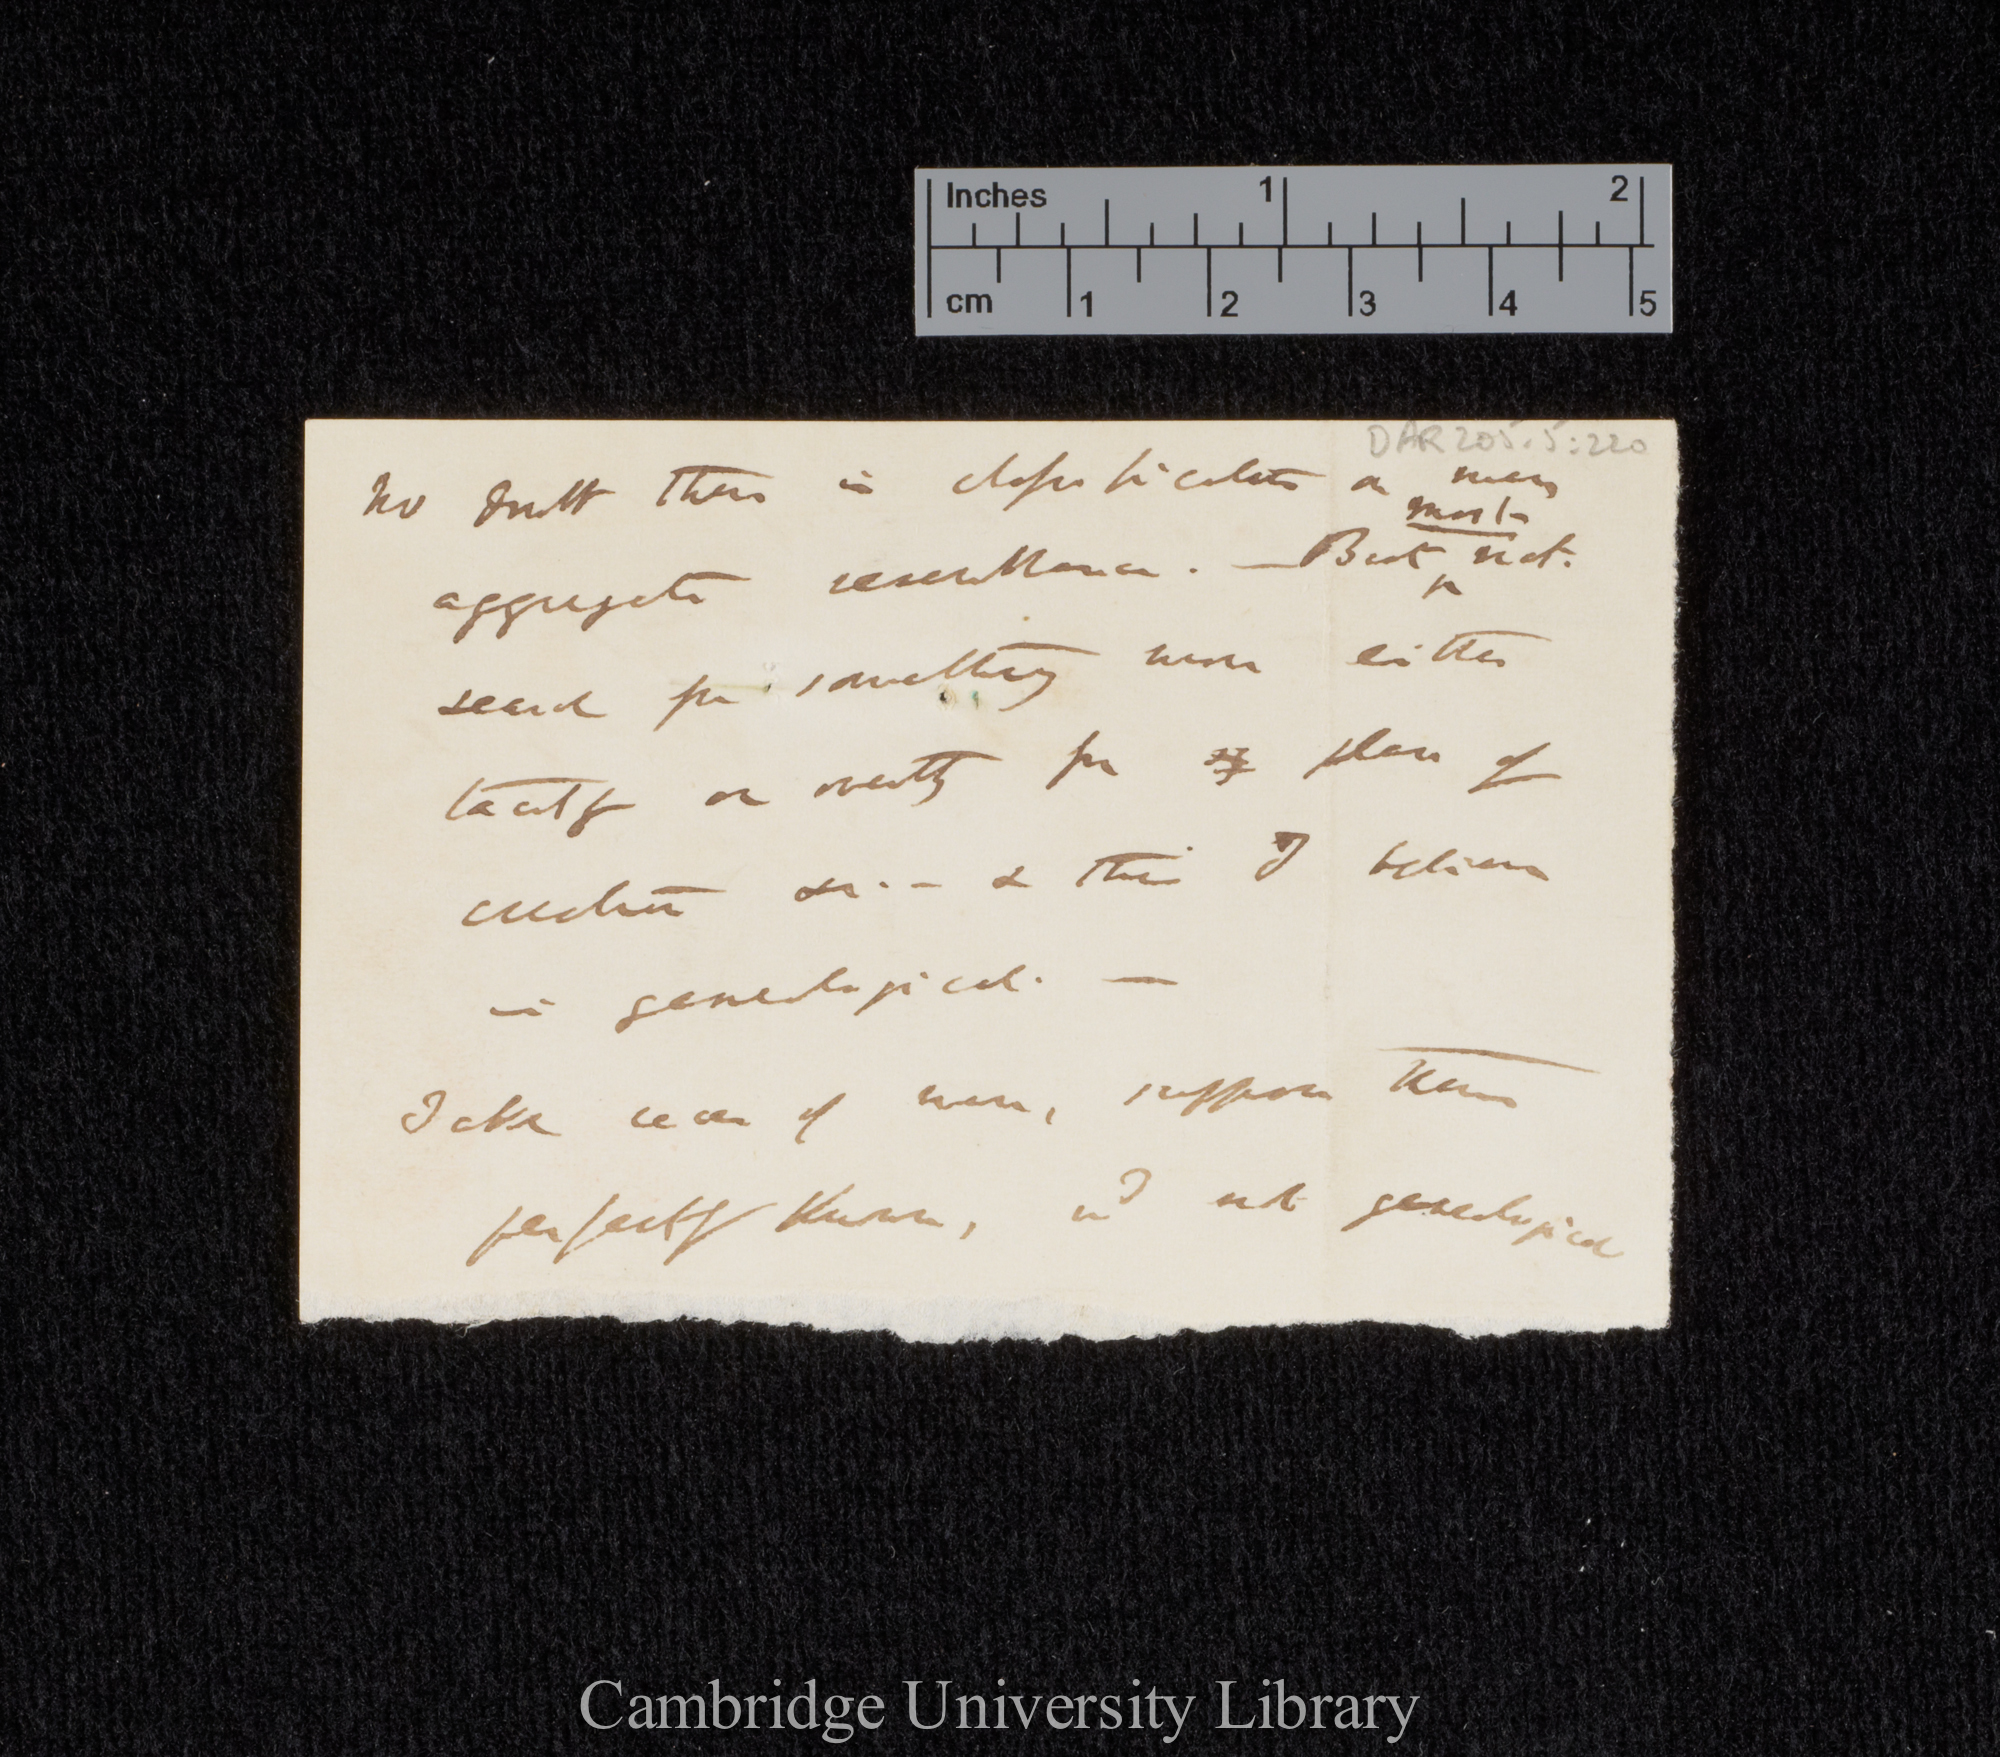 Inches 1 2
cm 1 2 3 4 5
DAR 205.5:220
No doubt there is classification on mere
most
aggregate resemblance. — But ^ nat.
search for something more either
tacitly or overtly for plan of
creation &c. — & this I believe
is genealogical. —
Take races of men, suppose them
perfectly known, wd not genealogical
Cambridge University Library